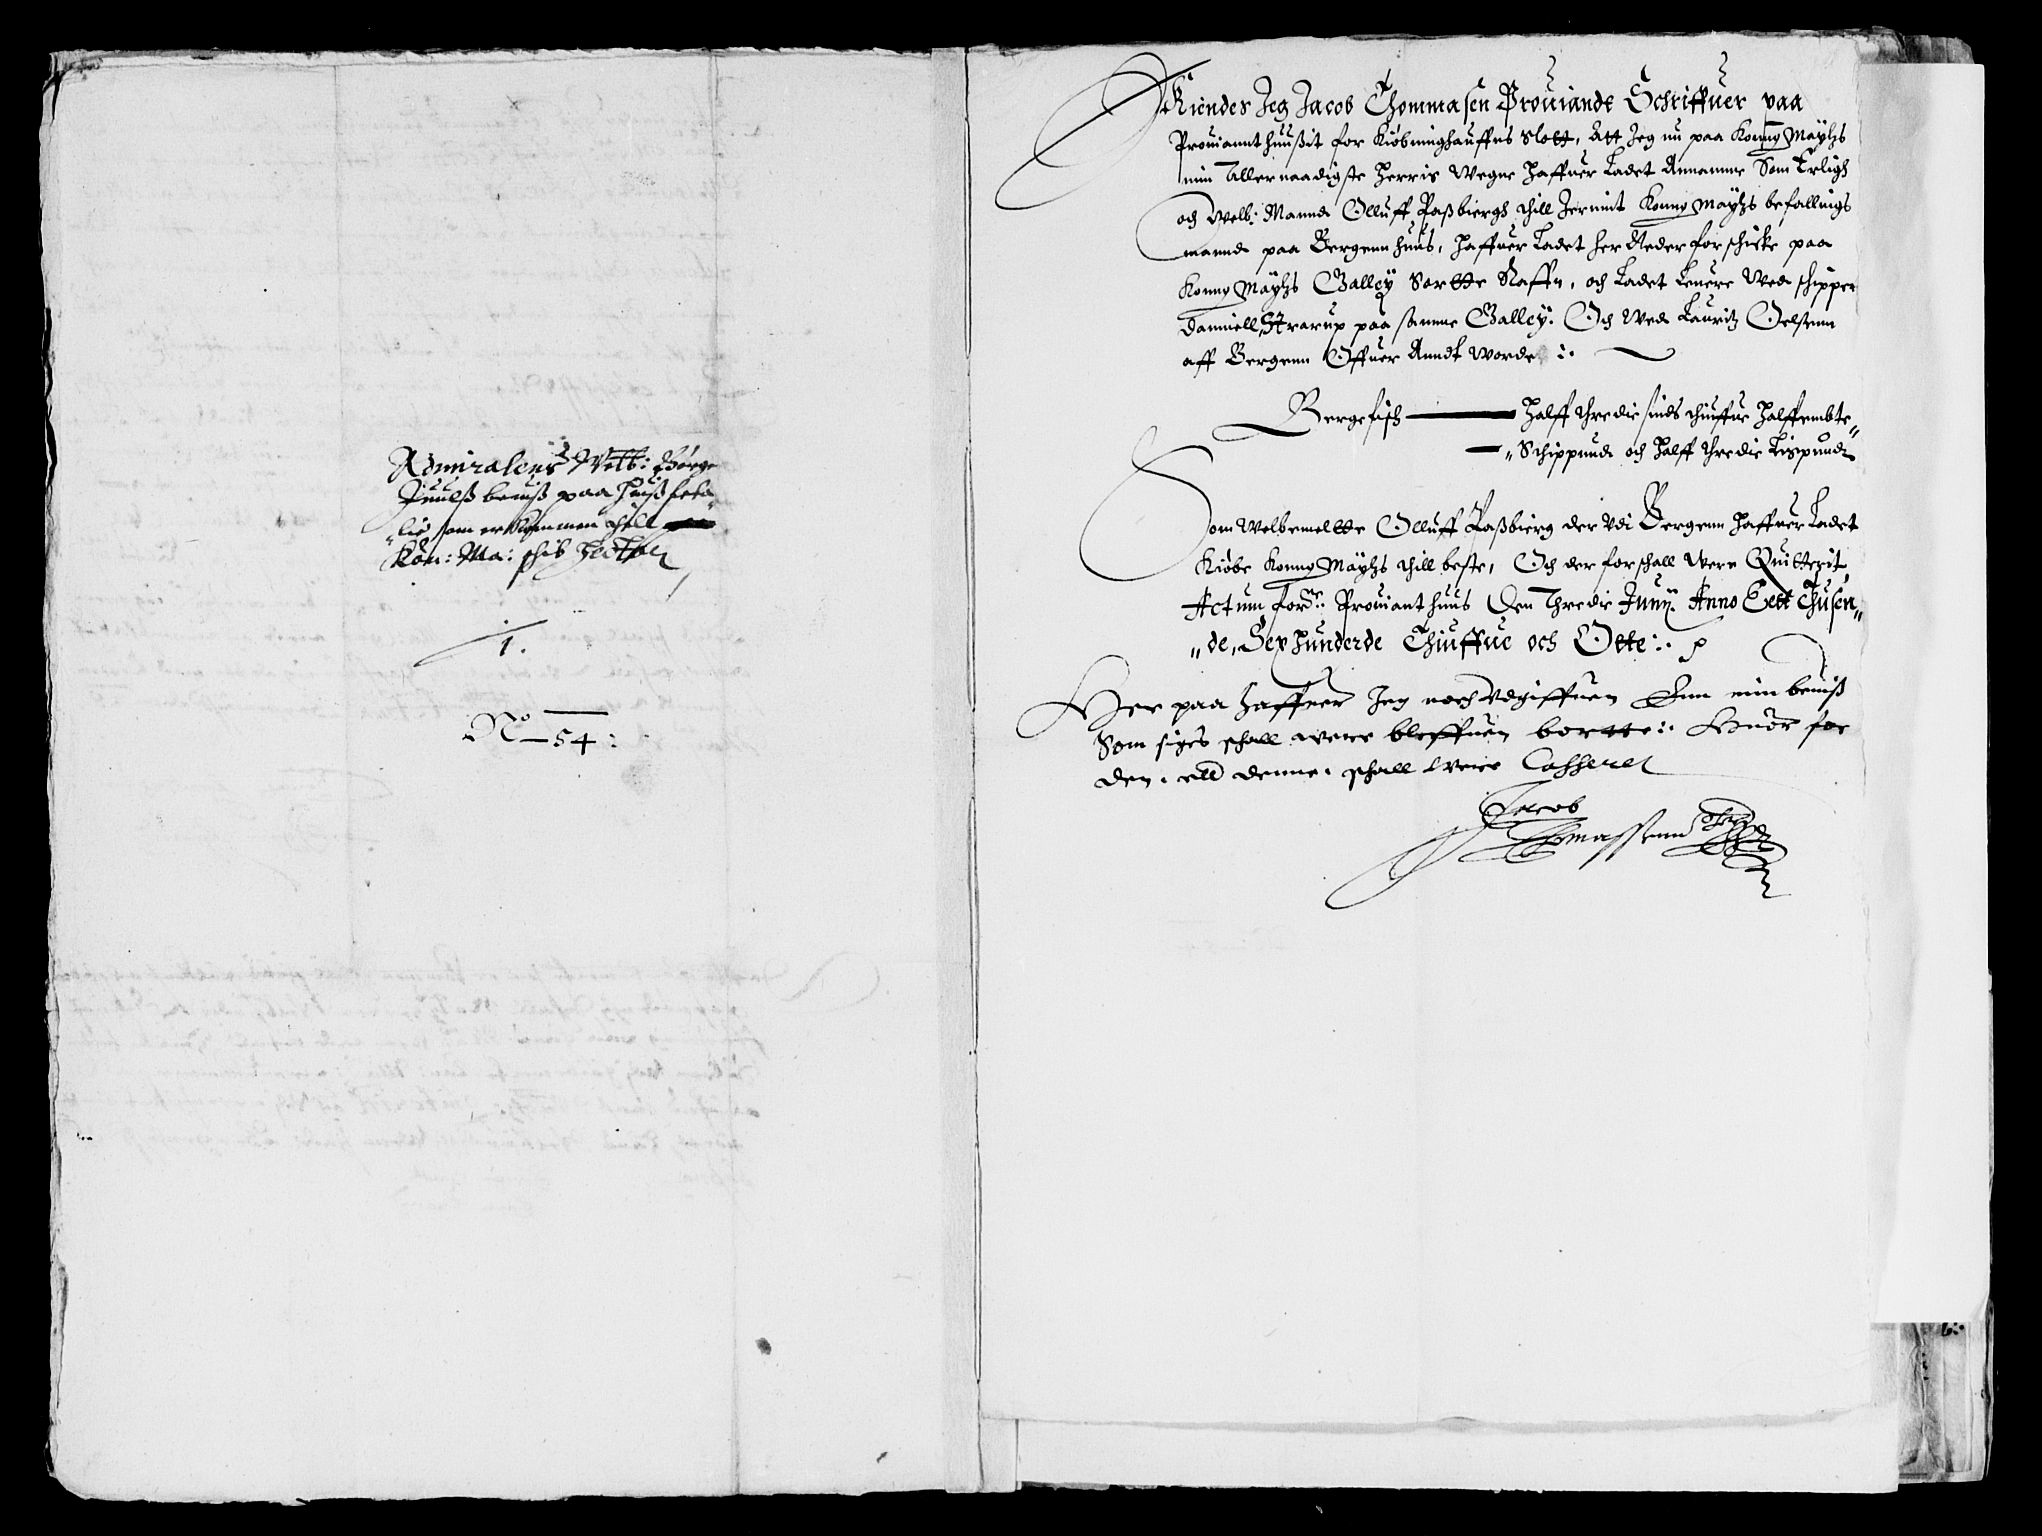 Admiralens Welb: Børge
Juulß beuiß paa Hußfeta-
"lie som er kommen thill
Kon: Ma: schib Hector
1.
No 54:
Kiendes Jeg Jacob Thommasen Prouiandt Schriffuer paa
Prouiannt huußit for Kiøbninghauffns Slott, Att Jeg nu paa Konng Maytzs
min Allernaadigste Herris Wegne Haffuer Ladet Annamme Som Erligh
och Welb: Mannd Olluff Paßbiergh thill Jernnit Konng Maytzs befallnigs
mannd paa Bergennhuus, Haffuer Ladet her Neder forschicke paa
Konng Maytzs Galley Sortte Raffn, och Ladet Leuere Wed schipper
Danniell Strarup paa samme Galley. Och Wed Lauritz Oelsenn
aff Bergenn Offuer Anndt Worde
Bergefisch — Halff thredie sinds thiuffue Halffembte"
"Schippund och Halff thredie Lispundt
Som Welbemeltte Olluff Paßbierg der Vdi Bergenn Haffuer Ladet
Kiøbe Konng Maytzs thill beste, Och der for schall were Quitterit
Actum forne: Prouiant huus Den Thredie Junij. Anno Eett Thusen"
"de, Sexhunderde Thiuffue och Otte:
Her paa Haffuer Jeg noch Vdgiffuen Enn min beuiß
Som siges schall were bleffuen bortte: Huor for
den, eld denne, schall were Casseret
Jacob
Thomassenn